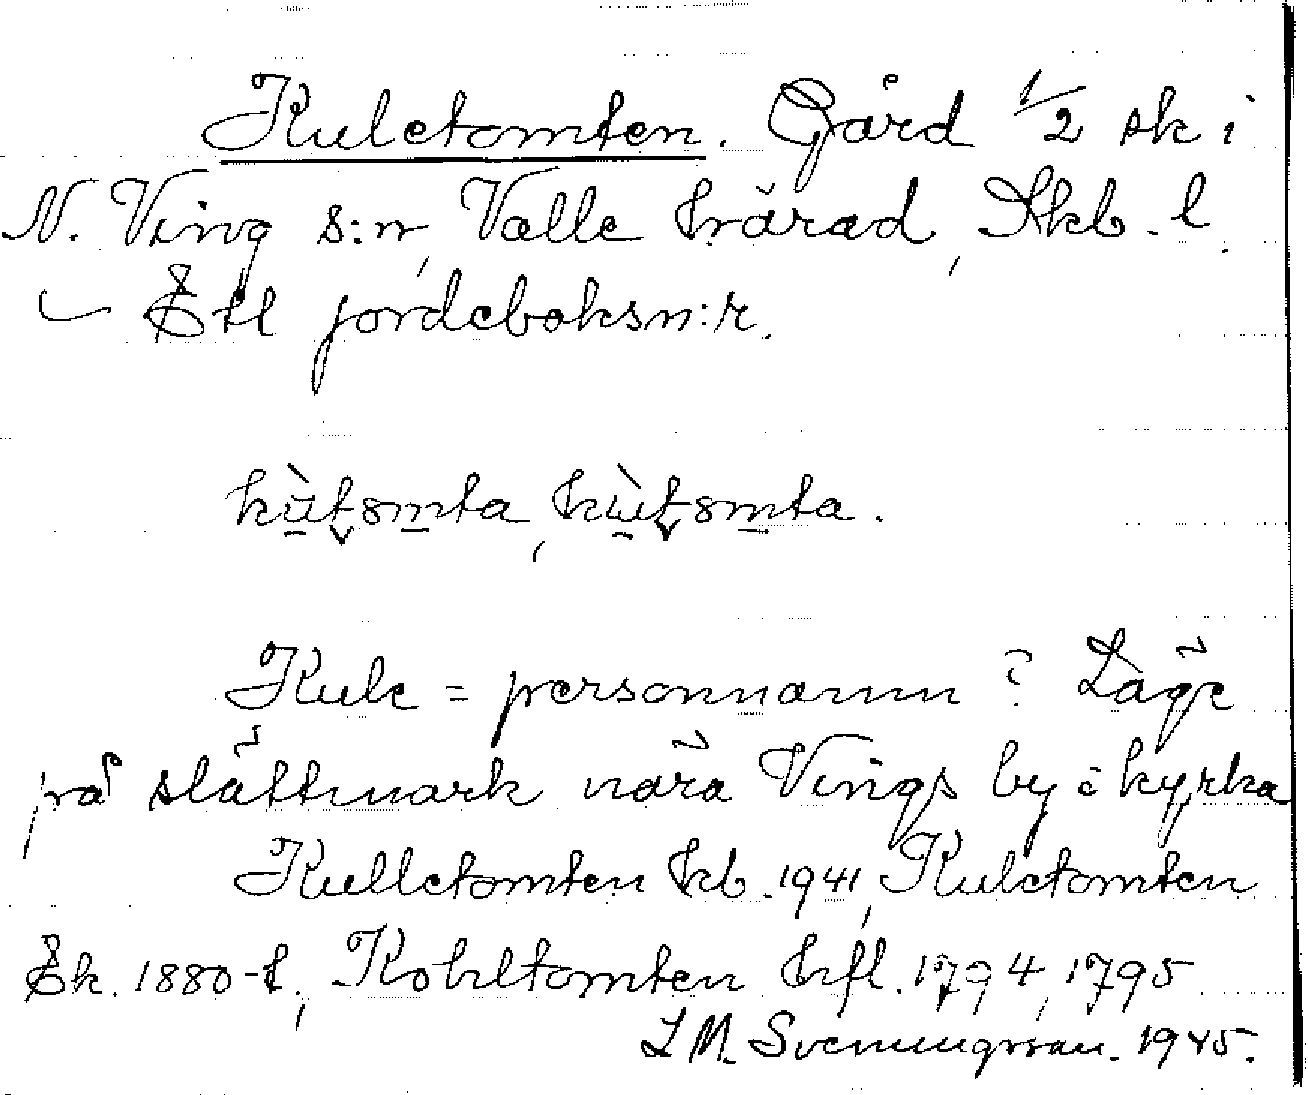 Kuletomten. Gård 1/2 sk i
N. Ving s:n, Valle härad, Skb. l.
Ett jordeboksn:r.
Kule = personnamn? Läge
på slättmark nära Vings by o kyrka
Kulletomten kb. 1941, Kuletomten
Ek. 1880-t., Kohltomten hfl. 1794, 1795
L M. Svenungsson. 1945.